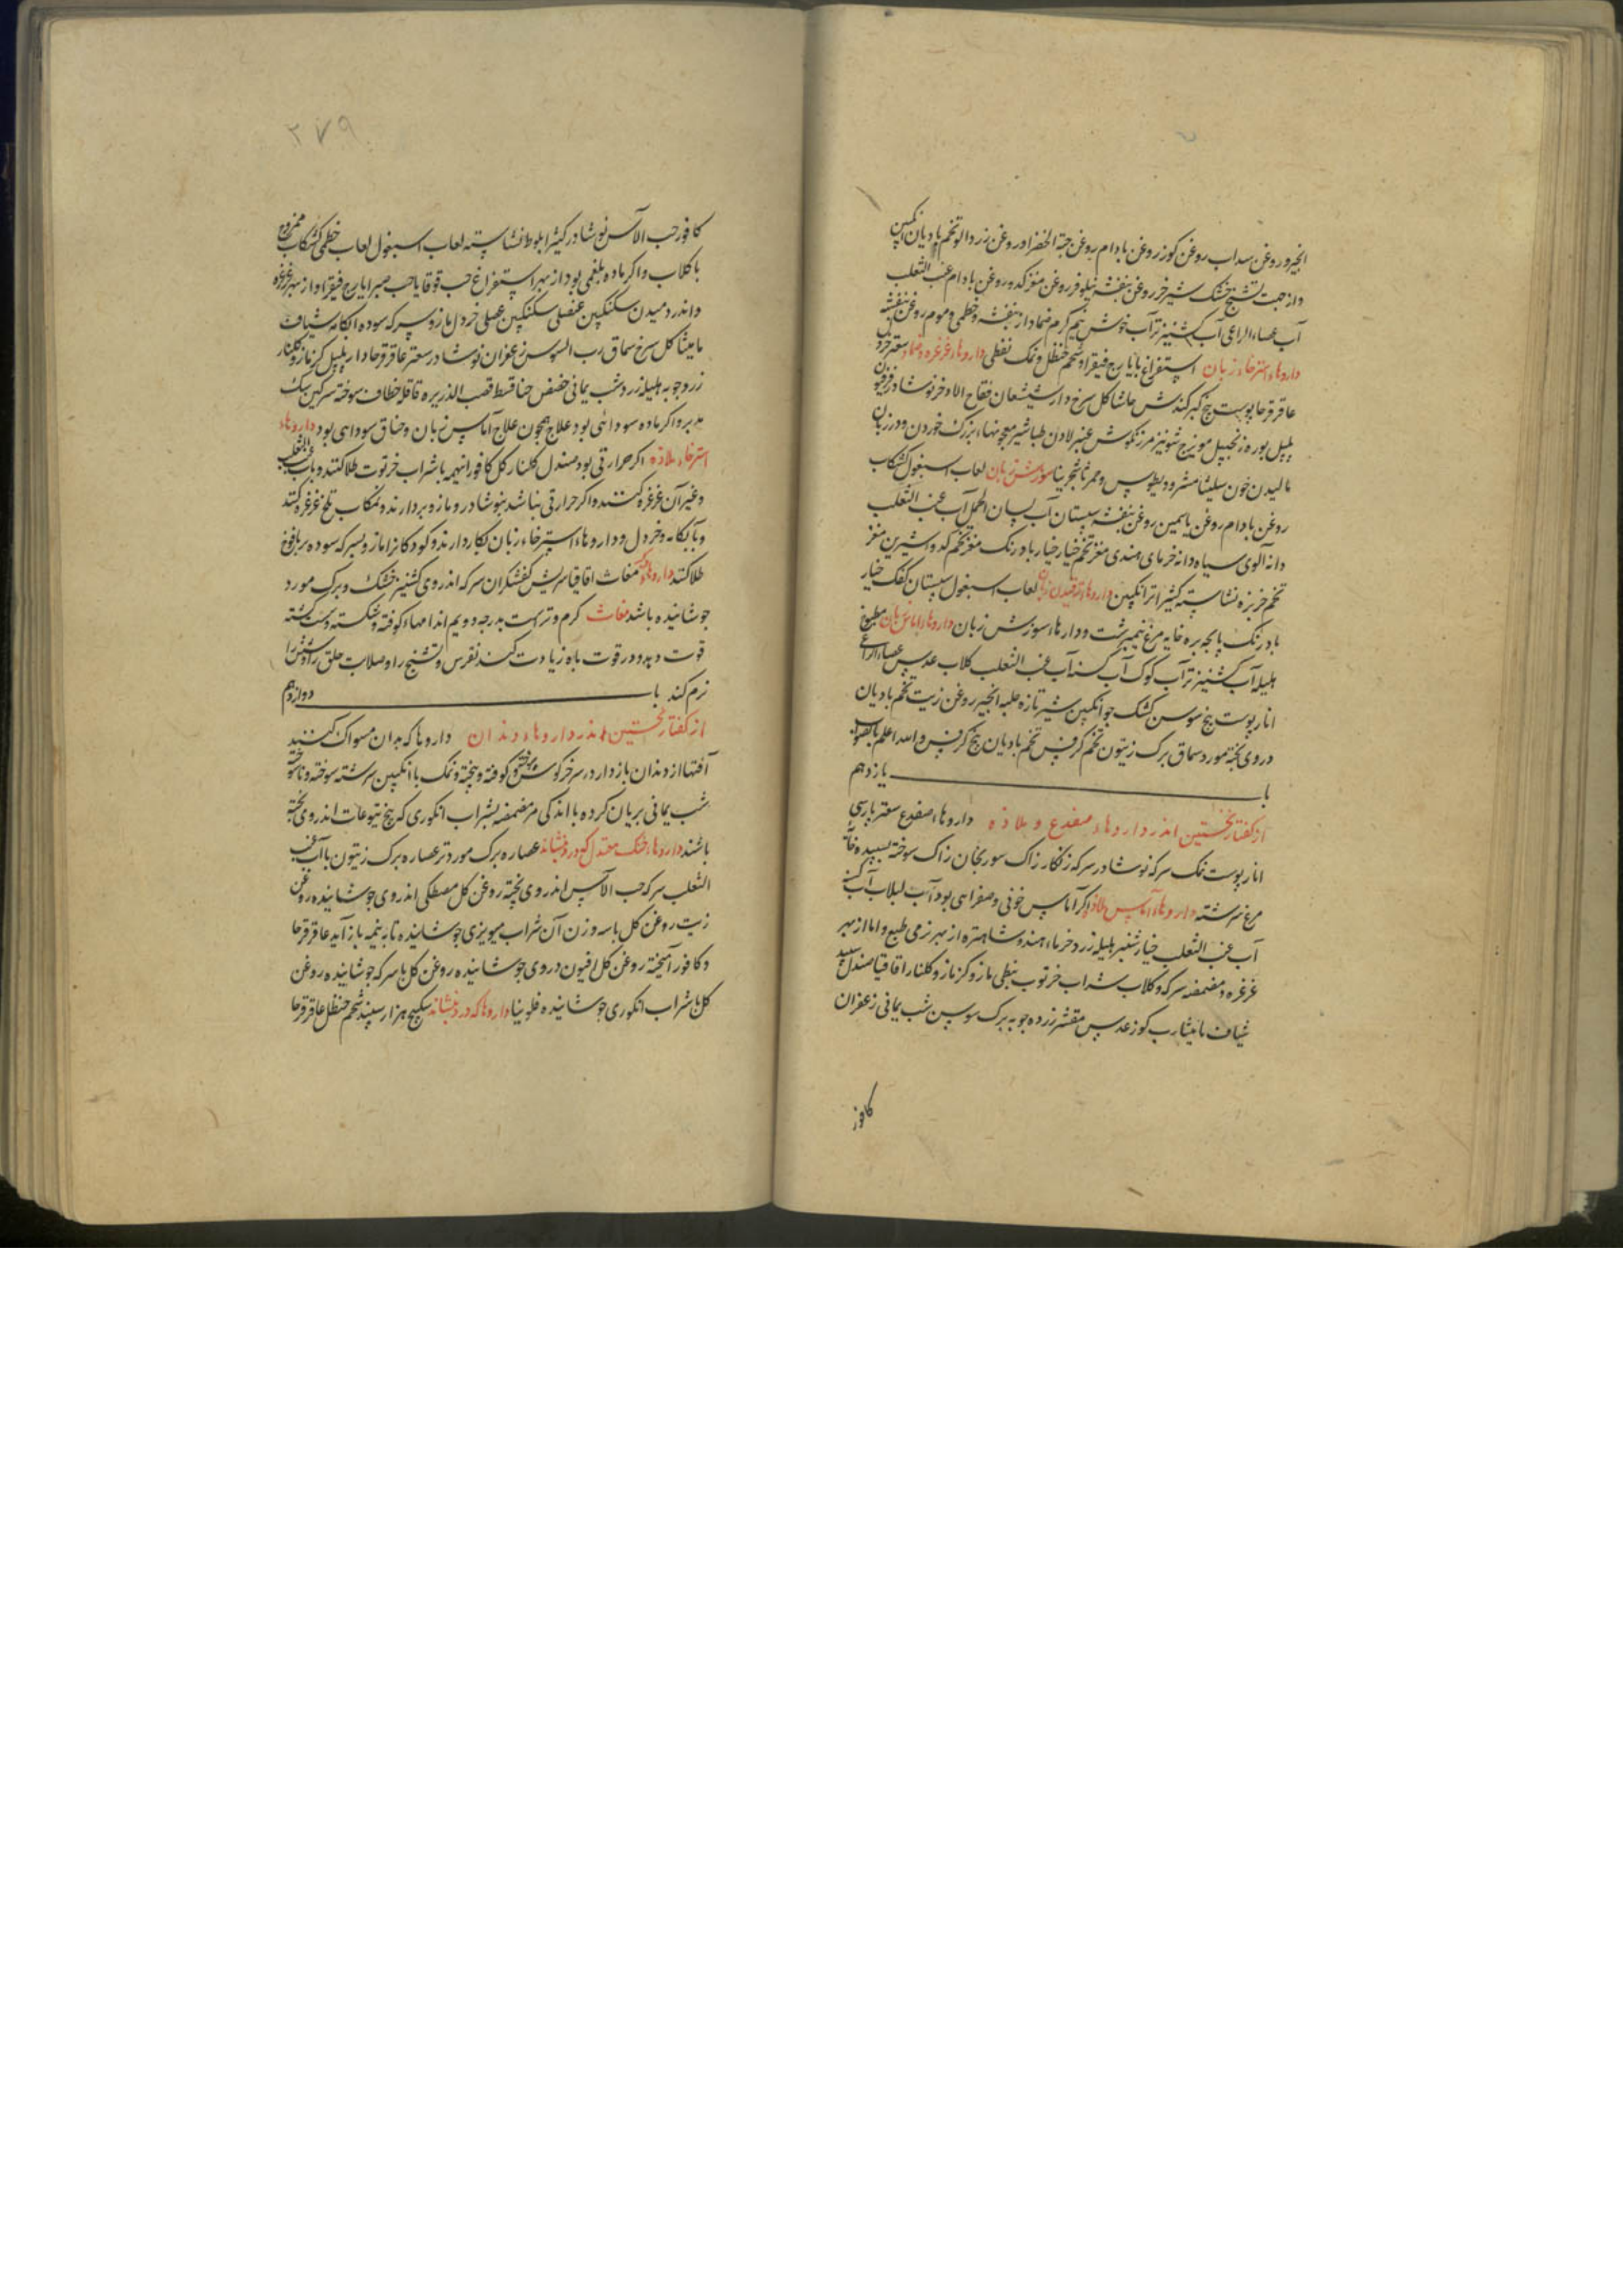 انجیر و روغن سداب روغن کوز روغن بادام روغن حبة الخضرا و روغن زردالو تخم بادیان انکبین
و از جهت تشنج خشک شیر خر روغن بنفشه نیلوفر روغن مغز کدو روغن بادام عنب الثعلب
آب عصاء الراعی آب کشنیز تر آب خوش نیم کرم ضماد از بنفشه و خطمی و موم روغن بنفشه
داروهاء استرخاء زبان استفراغ بایارج فیقرا و شحم حنظل و نمک نفطی داروهاء غرغره و ضماد سعتر خردل
عاقرقرحا پوست بیخ کبر کندش حاشا کل سرخ دارشیشعان فقاح الاذخر نوشادر فرفیون
پلپل بوره زنجبیل مویزج شونیز مرزنکوش عنبر لادن طباشیر معجونهاء بزرک خوردن و در زبان
مالیدن چون سلیثا مثرودیطوس و حمر ثا شجرینا سوزش زبان لعاب اسبغول کشکاب
روغن بادام روغن یاسمین روغن بنفشه سپستان آب لسان الحمل آب عنب الثعلب
دانه آلوی سیاه دانه خرمای هندی مغز تخم خیار خیار بادرنک مغز تخم کدو شیرین مغز
تخم خربزه نشاسته کثیرا ترانکبین داروهاء ترقیدن زبان لعاب اسبغول سپستان کفک خیار
بادرنک پایجه بره خایه مرغ نیمبرشت و داروهاء سوزش زبان داروهاء آماس زبان مطبوخ
هلیله آب کشنیز تر آب کوک آب کسنه آب عنب الثعلب کلاب عدس عصاء الراعی
انار پوست بیخ سوسن کشک جو انکبین شیر تازه حلبه انجیر روغن زیت تخم بادیان
در وی پخته مورد سماق برک زیتون تخم کرفس تخم بادیان بیخ کرفس والله اعلم بالصواب
باب یازدهم
از کفتار نخستین اندر داروهاء ضفدع و ملاذه داروهاء ضفدع سعتر پارسی
انار پوست نمک سرکه نوشادر سرکه زنکار زاک سوریجان زاک سوخته بسپیده خایه
مرغ سرشته داروهاء آماس ملاذه اکر آماس خونی و صفرایی بود آب لبلاب آب کسنه
آب عنب الثعلب خیارشنبر هلیله زرد خرماء هندو شاهتره از بهر نرمی طبع و اما از بهر
غرغره و مضمضه سرکه و کلاب شراب خرتوب نبطی مازو کزمازو کلنار اقاقیا صندل سپید
شیاف مامیثا رب کوز عدس مقشر زرده جوبه برک سوسن شب یمانی زعفران
کافور
۳۷۹
کافور حب الآس نوشادر کثیرا بلوط نشاسته لعاب اسبغول لعاب خطمی کشکاب ممزوج
با کلاب و اکر ماده بلغمی بود از بهر استفراغ حب قوقایا حب صبر ایارج فیقرا و از بهر غرغره
و اندر دمیدن سکنکبین عنصلی سکنکبین عسلی خردل مازو سرکه سوده آبکامه شیاف
مامیثا کل سرخ سماق رب السوس زعفران نوشادر سعتر عاقرقرحا دارپلپل کزمازو کلنار
زردجوبه هلیله زرد شب یمانی حضض حنا قسط قصب الذریره قاقله خطاف سوخته سرکین سک
مدبر و اکر ماده سودائی بود علاج همچون علاج آماس زبان و خناق سودایی بود داروهاء
استرخاء ملاذه اکر حرارتی بود صندل کلنار کل کافور اینهمه با شراب خرتوت طلا کنند و باب عنب الثعلب
و غیر آن غرغره کنند و اکر حرارتی نباشد بنوشادر و مازو بردارند و نمکاب تلخ غرغره کنند
و بآبکامه و خردل و داروهاء استرخاء زبان بکار دارند و کودکانرا مازو بسرکه سوده بر یافوخ
طلا کنند داروهاء دیکر مغاث اقاقیا سریش کفشکران سرکه اندر وی کشنیز خشک و برک مورد
جوشانیده باشد مغاث کرم و ترست بدرجه دویم اندامهاء کوفته و شکسته و سست کشته
قوت دهد و در قوت باه زیادت کند نقرس و تشنج را و صلابت حلق را و شش را
نرم کند باب دوازدهم
از کفتار نخستین اندر داروهاء دندان داروها که بدان مسواک کنند
آفتها از دندان باز دارد سر خرکوش سوخته کوفته و بیخته و نمک با انکبین سرشته سوخته و ناسوخته
شب یمانی بریان کرده با اندکی مر مضمضه بشراب انکوری که بیخ یتوعات اندر وی پخته
باشند داروهاء خنک معتدل که درد بنشاند عصاره برک مورد تر عصاره برک زیتون با آب عنب
الثعلب سرکه حب الآس اندر وی پخته روغن کل مصطکی اندر وی جوشانیده روغن
زیت روغن کل با سه وزن آن شراب میویزی جوشانیده تا به نیمه باز آید عاقرقرحا
و کافور آمیخته روغن کل افیون در وی جوشانیده روغن کل با سرکه جوشانیده روغن
کل با شراب انکوری جوشانیده فلونیا داروها که درد بنشاند سکبینج هزاراسپند شحم حنظل عاقرقرحا